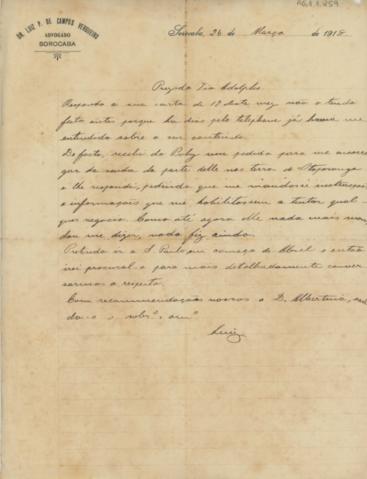 DR. LUIZ P. DE CAMPOS VERGUEIRO
ADVOGADO
SOROCABA
Sorocaba, 26 de Março de 1918
Prezado Tio Adolpho
Respondo a sua carta de 18 deste mez não o tendo
feito antes porque ha dias pelo telephone já me
entendido sobre o seu conteúdo.
De facto, recebi do Ruby um pedido para me encarre-
gar da venda da parte delle nas terras de Itaporanga
e lhe respondi, pedindo que me mandasse instrucções
e informações que me habilitassem a tentar qual-
quer negocio. Como até agora elle nada mais man-
dou me dizer, nada fiz ainda.
Pretendo ir a S. Paulo em começo de Abril e então
irei procural-o para mais detalhadamente conver-
sarmos a respeito.
Com recommendações nossas a D. Albertina,
do-o o sobrº. e amº
Luiz